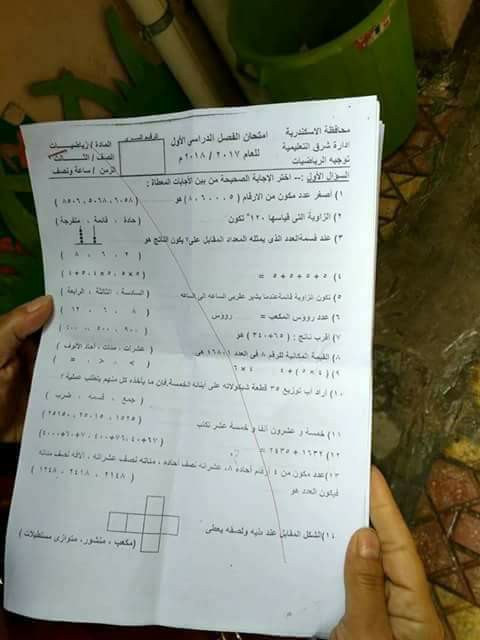 محافظة الاسكندرية
ادارة شرق التعليمية
توجيه الرياضيات
امتحان الفصل الدراسي الأول
للعام ٢٠١٧ / ٢٠١٨م
الرقم السرى
المادة / رياضيات
الصف / الثالث
الزمن / ساعة ونصف
السؤال الأول :-- اختر الإجابة الصحيحة من بين الأجابات المعطاة :
١) أصغر عدد مكون من الارقام ( ٥ ، ٠ ، ٦ ، ٨ ) هو ( ٦٠٥٨ ، ٥٠٦٨ ، ٨٥٠٦ )
٢) الزاوية التى قياسها ١٢٠° تكون ( حادة ، قائمة ، منفرجة )
٣) عند قسمة العدد الذى يمثله المعداد المقابل على ٢ يكون الناتج هو ( ٢ ، ٦ ، ٨ )
٤) ٥ + ٥ + ٥ + ٥ = ( ٥×٥ ، ٥×٤ ، ٥+٤ )
٥) تكون الزاوية قائمة عندما يشير عقربى الساعه الى الساعه ( السادسة ، الثالثة ، الرابعة )
٦) عدد رووس المكعب = رووس ( ٨ ، ٦ ، ١٢ )
٧) أقرب ناتج : ( ٦٥ + ٣٤٠ ) هو ( ٩٠٠ ، ٥٠٠ ، ٤٠٠ )
٨) القيمة المكانية للرقم ٨ فى العدد ١٦٨٠١ هى ( عشرات ، مئات ، أحاد الألوف )
٩) ( ٤ × ٥ ) + ٤ ٦ × ٤ ( > ، < ، = )
١٠) أراد أب توزيع ٣٥ قطعة شيكولاته على أبنائه الخمسة.فإن ما يأخذه كل منهم يتطلب عملية ؟
( جمع ، قسمه ، ضرب )
١١) خمسة و عشرون ألفا و خمسة عشر تكتب ( ١٥٢٥ ، ٢٥٠١٥ ، ٢٥١٥٠ )
١٢) ١٦٣٢ + ٢٤٣٥ =
١٣) عدد مكون من ٤ أرقام أحاده ٨، عشراته نصف أحاده ، مئاته نصف عشراته ، الافه نصف مئاته
فيكون العدد هو ( ٢١٤٨ ، ٢٤١٨ ، ١٢٤٨ )
١٤) الشكل المقابل عند ولصقه يعطى
(مكعب ، منشور، متوازى مستطيلات )